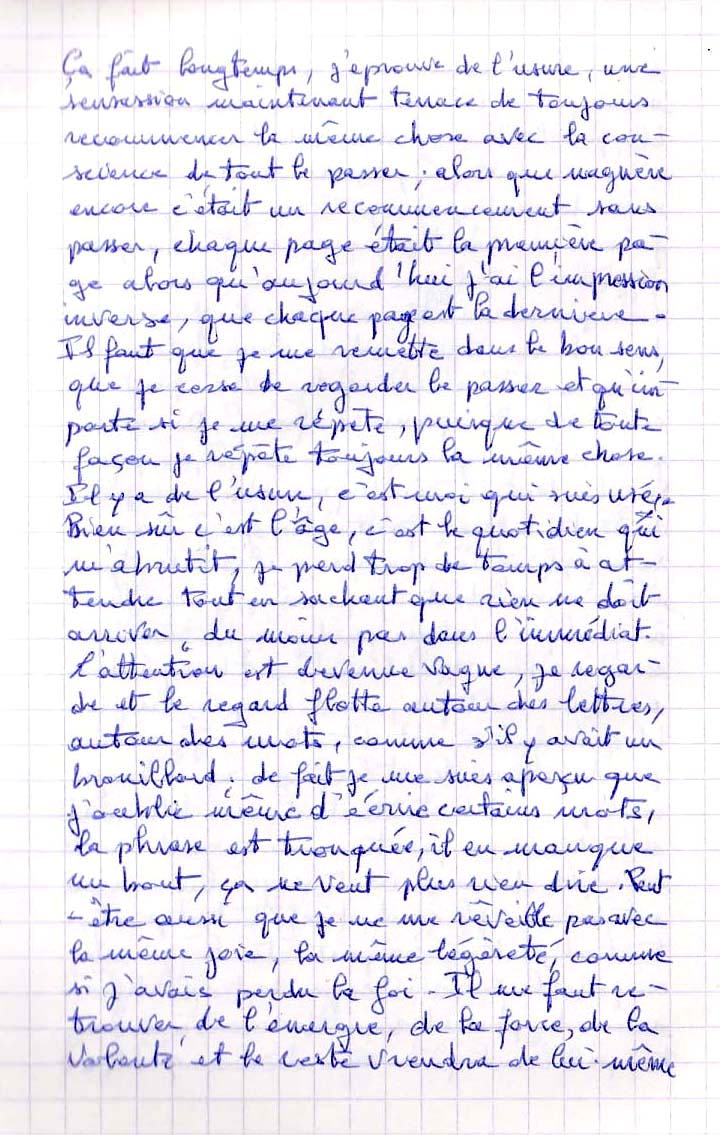 Ça fait longtemps, j'éprouve de l'usure, une
sensassion maintenant tenace de toujours
recommencer la même chose avec la con-
science de tout le passer ; alors que naguère
encore c'était un recommencement sans
passer, chaque page était la première pa-
ge alors qu'aujourd'hui j'ai l'impression
inverse, que chaque page est la dernière.
Il faut que je me remette dans le bon sens,
que je cesse de regarder le passer et qu'im-
porte si je me répète, puisque de toute
façon je répète toujours la même chose.
Il y a de l'usure, c'est moi qui suis usé.
Bien sûr c'est l'âge, c'est le quotidien qui
m'abrutit, je perd trop de temps à at-
tendre tout en sachant que rien ne doit
arriver, du moins pas dans l'immédiat.
L'attention est devenue vague, je regar-
de et le regard flotte autour des lettres,
autour des mots, comme s'il y avait un
brouillard ; de fait je me suis aperçu que
j'oublie même d'écrire certains mots,
la phrase est tronquée, il en manque
un bout, ça ne veut plus rien dire. Peut
-être aussi que je ne me réveille pas avec
la même joie, la même légèreté, comme
si j'avais perdu la foi. Il me faut re-
trouver de l'énergie, de la force, de la
volonté et le reste viendra de lui-même